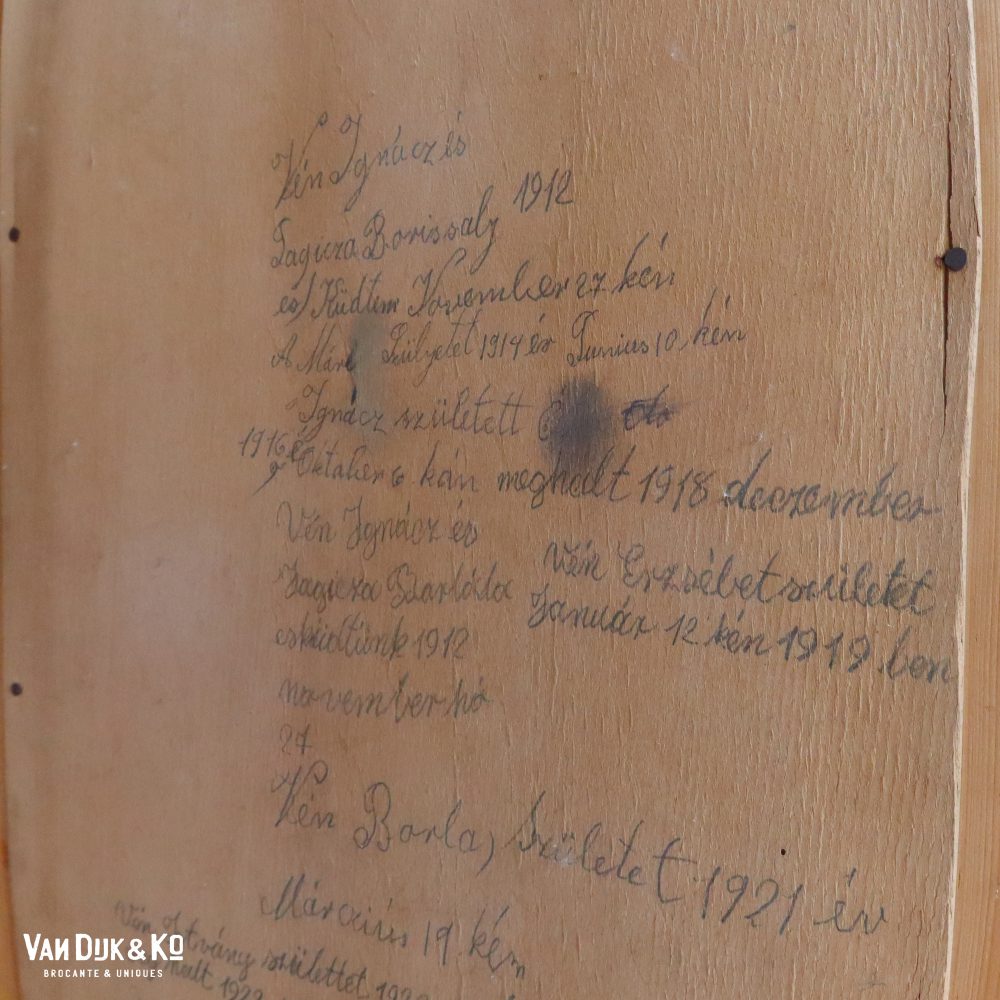 Vén Ignácz és
1912
Lagicza Borissaly
es) Küdtem November 27 kén
A Mári Sülyetet 1914 év Junius 10 kén
Ignácz született
1916 é Oktober 6 kán meghalt 1918 deczember
Vén Ignácz és
Lagicza Borbála
esküdtünk 1912
november hó
27
Vén Erzsèbet született
Január 12 kén 1919.ben
Vén Borla, Születet 1921 év
Március 19 kém
Vén Istvány születtet
halt 1922
VAN DIJK & KO
BROCANTE & UNIQUES